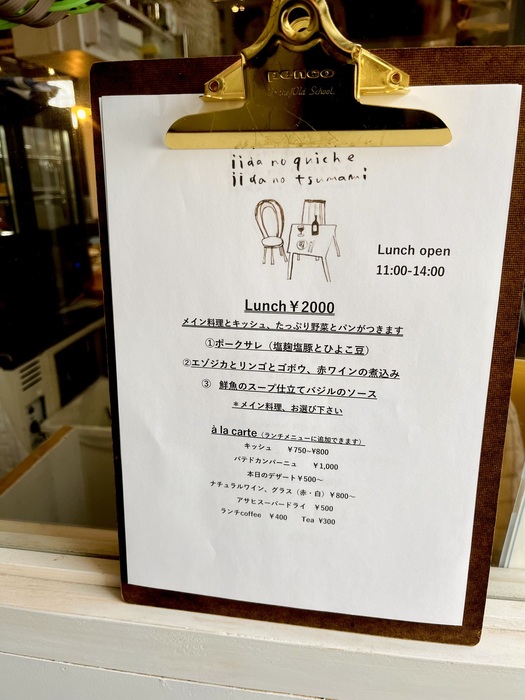 penco
Old School.
iida no quiche
iida no tsumami
Lunch open
11:00-14:00
Lunch￥2000
メイン料理とキッシュ、たっぷり野菜とパンがつきます
①ポークサレ（塩麹塩豚とひよこ豆）
②エゾジカとリンゴとゴボウ、赤ワインの煮込み
③ 鮮魚のスープ仕立てバジルのソース
＊メイン料理、お選び下さい
à la carte（ランチメニューに追加できます）
キッシュ ￥750~¥800
パテドカンパーニュ ￥1,000
本日のデザート￥500～
ナチュラルワイン、グラス（赤・白）￥800～
アサヒスーパードライ ￥500
ランチcoffee ￥400 Tea ¥300